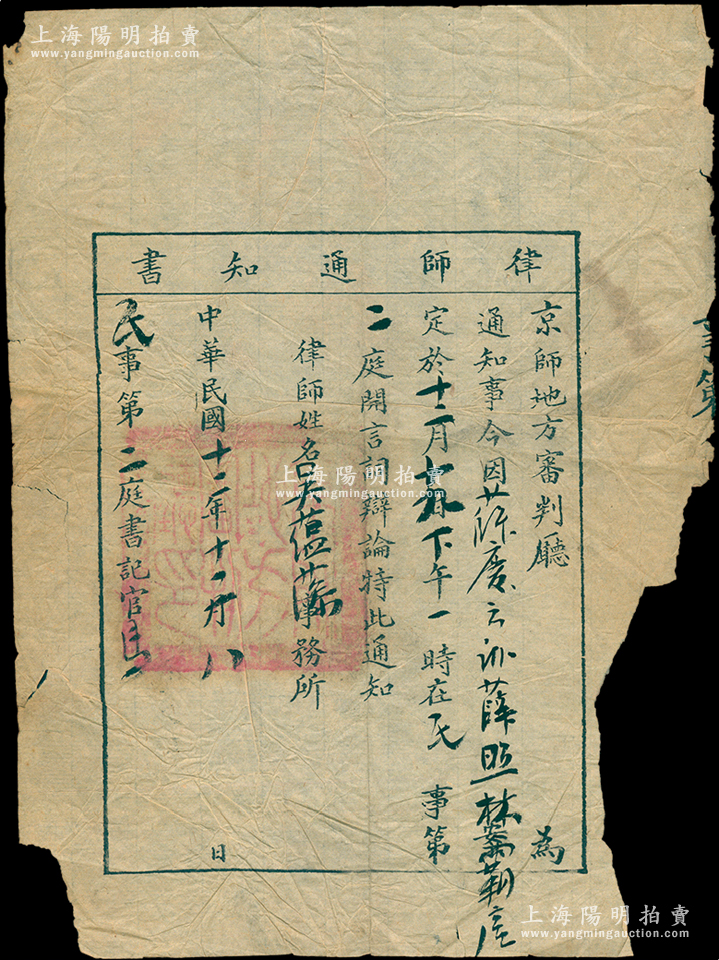 上海陽明拍賣
www.yangmingauction.com
上海陽明拍賣
www.yangmingauction.com
律師通知書
京師地方審判廳 為
通知事今因薛慶云訴薛照林
定於十二月 下午一時在民事第
二庭開言詞辯論特此通知
律師姓名吳蘊藻事務所
中華民國十二年十二月八日
民事第二庭書記官
事第
上海陽明拍賣
www.yangmingauction.com
上海陽明拍賣
www.yangmingauction.com